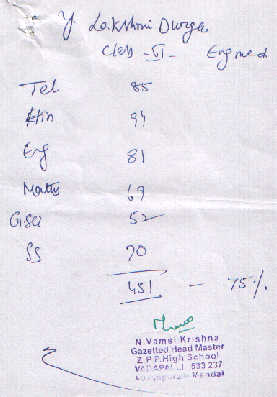 Y. Lakshmi Durga
Class - VI - Eng med
Tel 85
Hin 94
Eng 81
Maths 69
G.Sci 52
SS 70
451 - 75%
N.Vamsi Krishna
Gazetted Head Master
Z.P.P.High School
533 237
Mandal